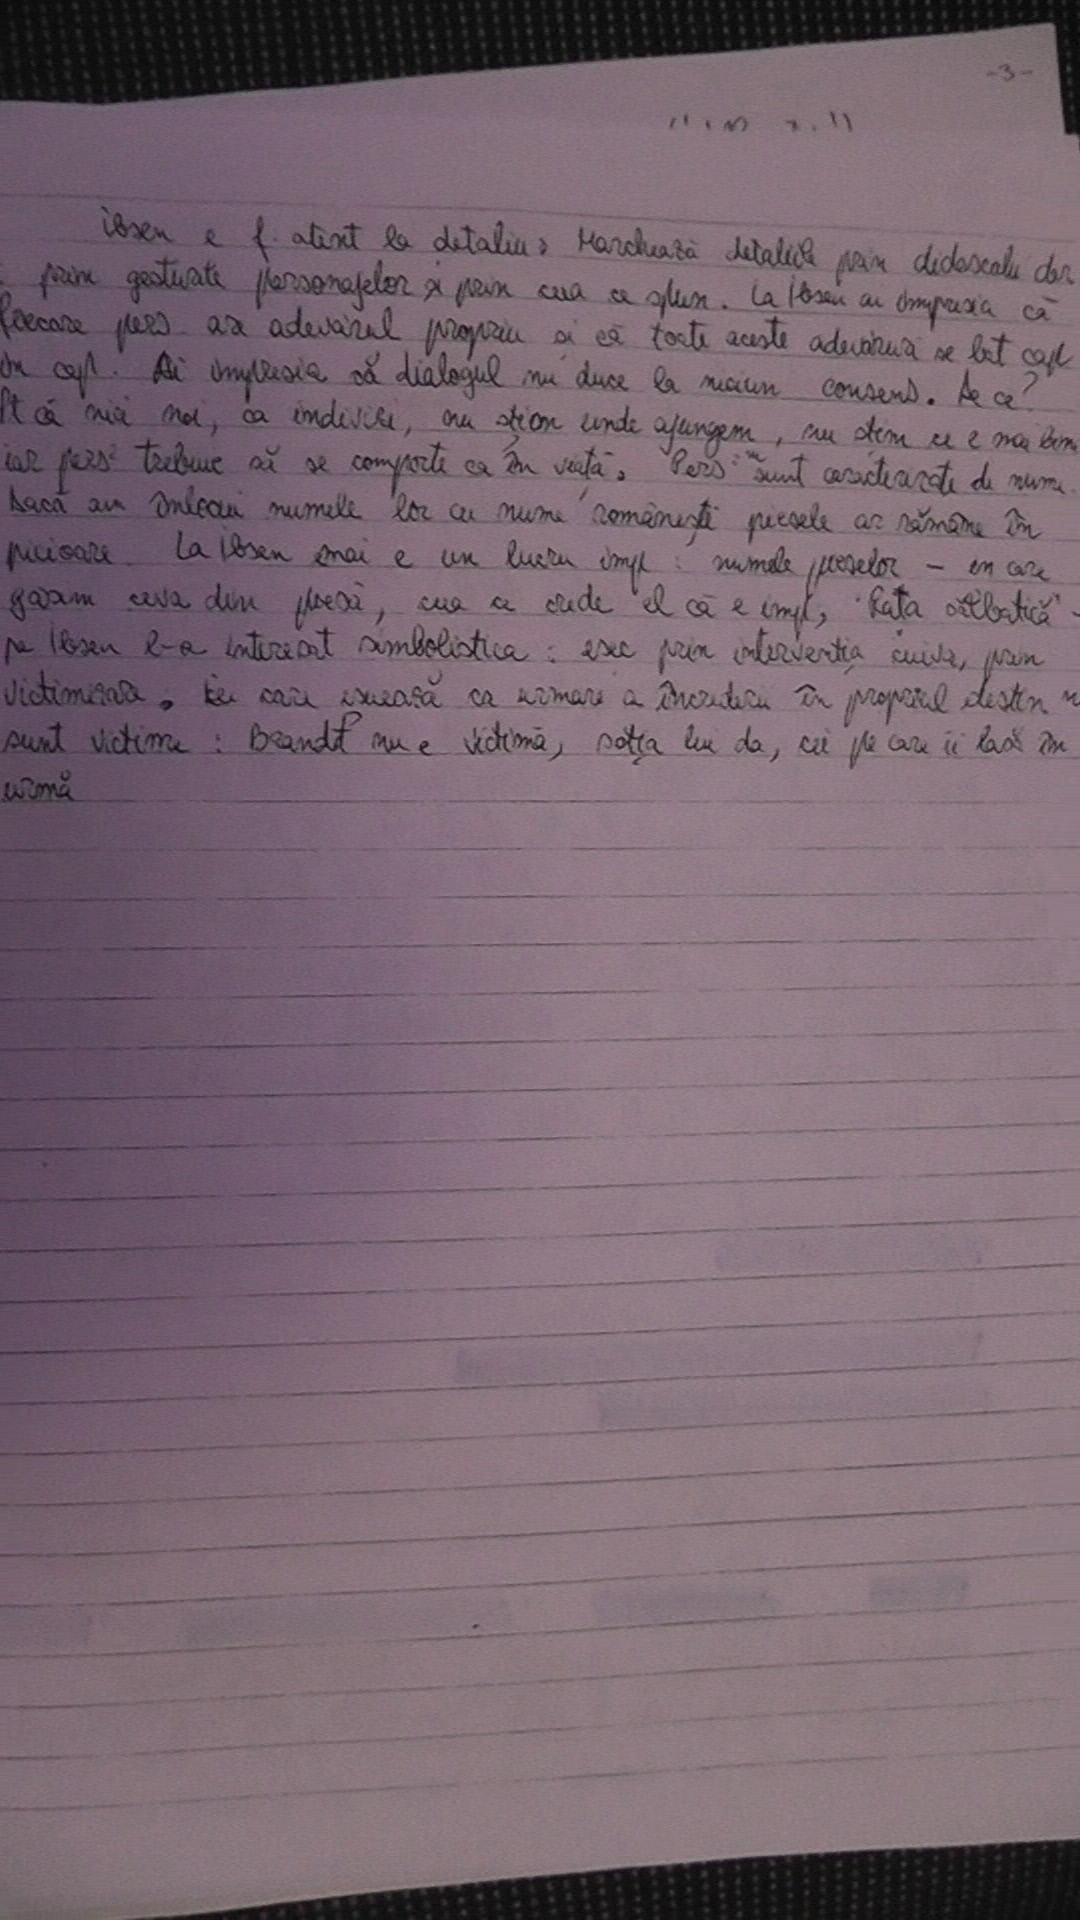 -3-
Ibsen e f. atent la detaliu. Marchează detaliile prin didascalii dar
prin gesturile personajelor și prin ceea ce spun. La Ibsen ai impresia că
fiecare pers. are adevărul propriu și că toate aceste adevăruri se bat cap
în cap. Ai impresia că dialogul nu duce la niciun consens. De ce?
Pt că nici noi, ca indivizi, nu știm unde ajungem, nu știm ce e mai bine
iar pers trebuie să se comporte ca în viață. Pers sunt caracterizate de nume.
Dacă am înlocui numele lor cu nume românești piesele ar rămâne în
picioare. La Ibsen mai e un lucru imp : numele pieselor – în care
găsim ceva din piesă, ceea ce crede el că e imp, "Rața sălbatică" -
pe Ibsen l-a interesat simbolistica : eșec prin intervenția cuiva, prin
victimizare. Cei care eșuează ca urmare a încrederii în propriul destin
sunt victime : Brandt nu e victimă, soția lui da, cei pe care îi lasă în
urmă